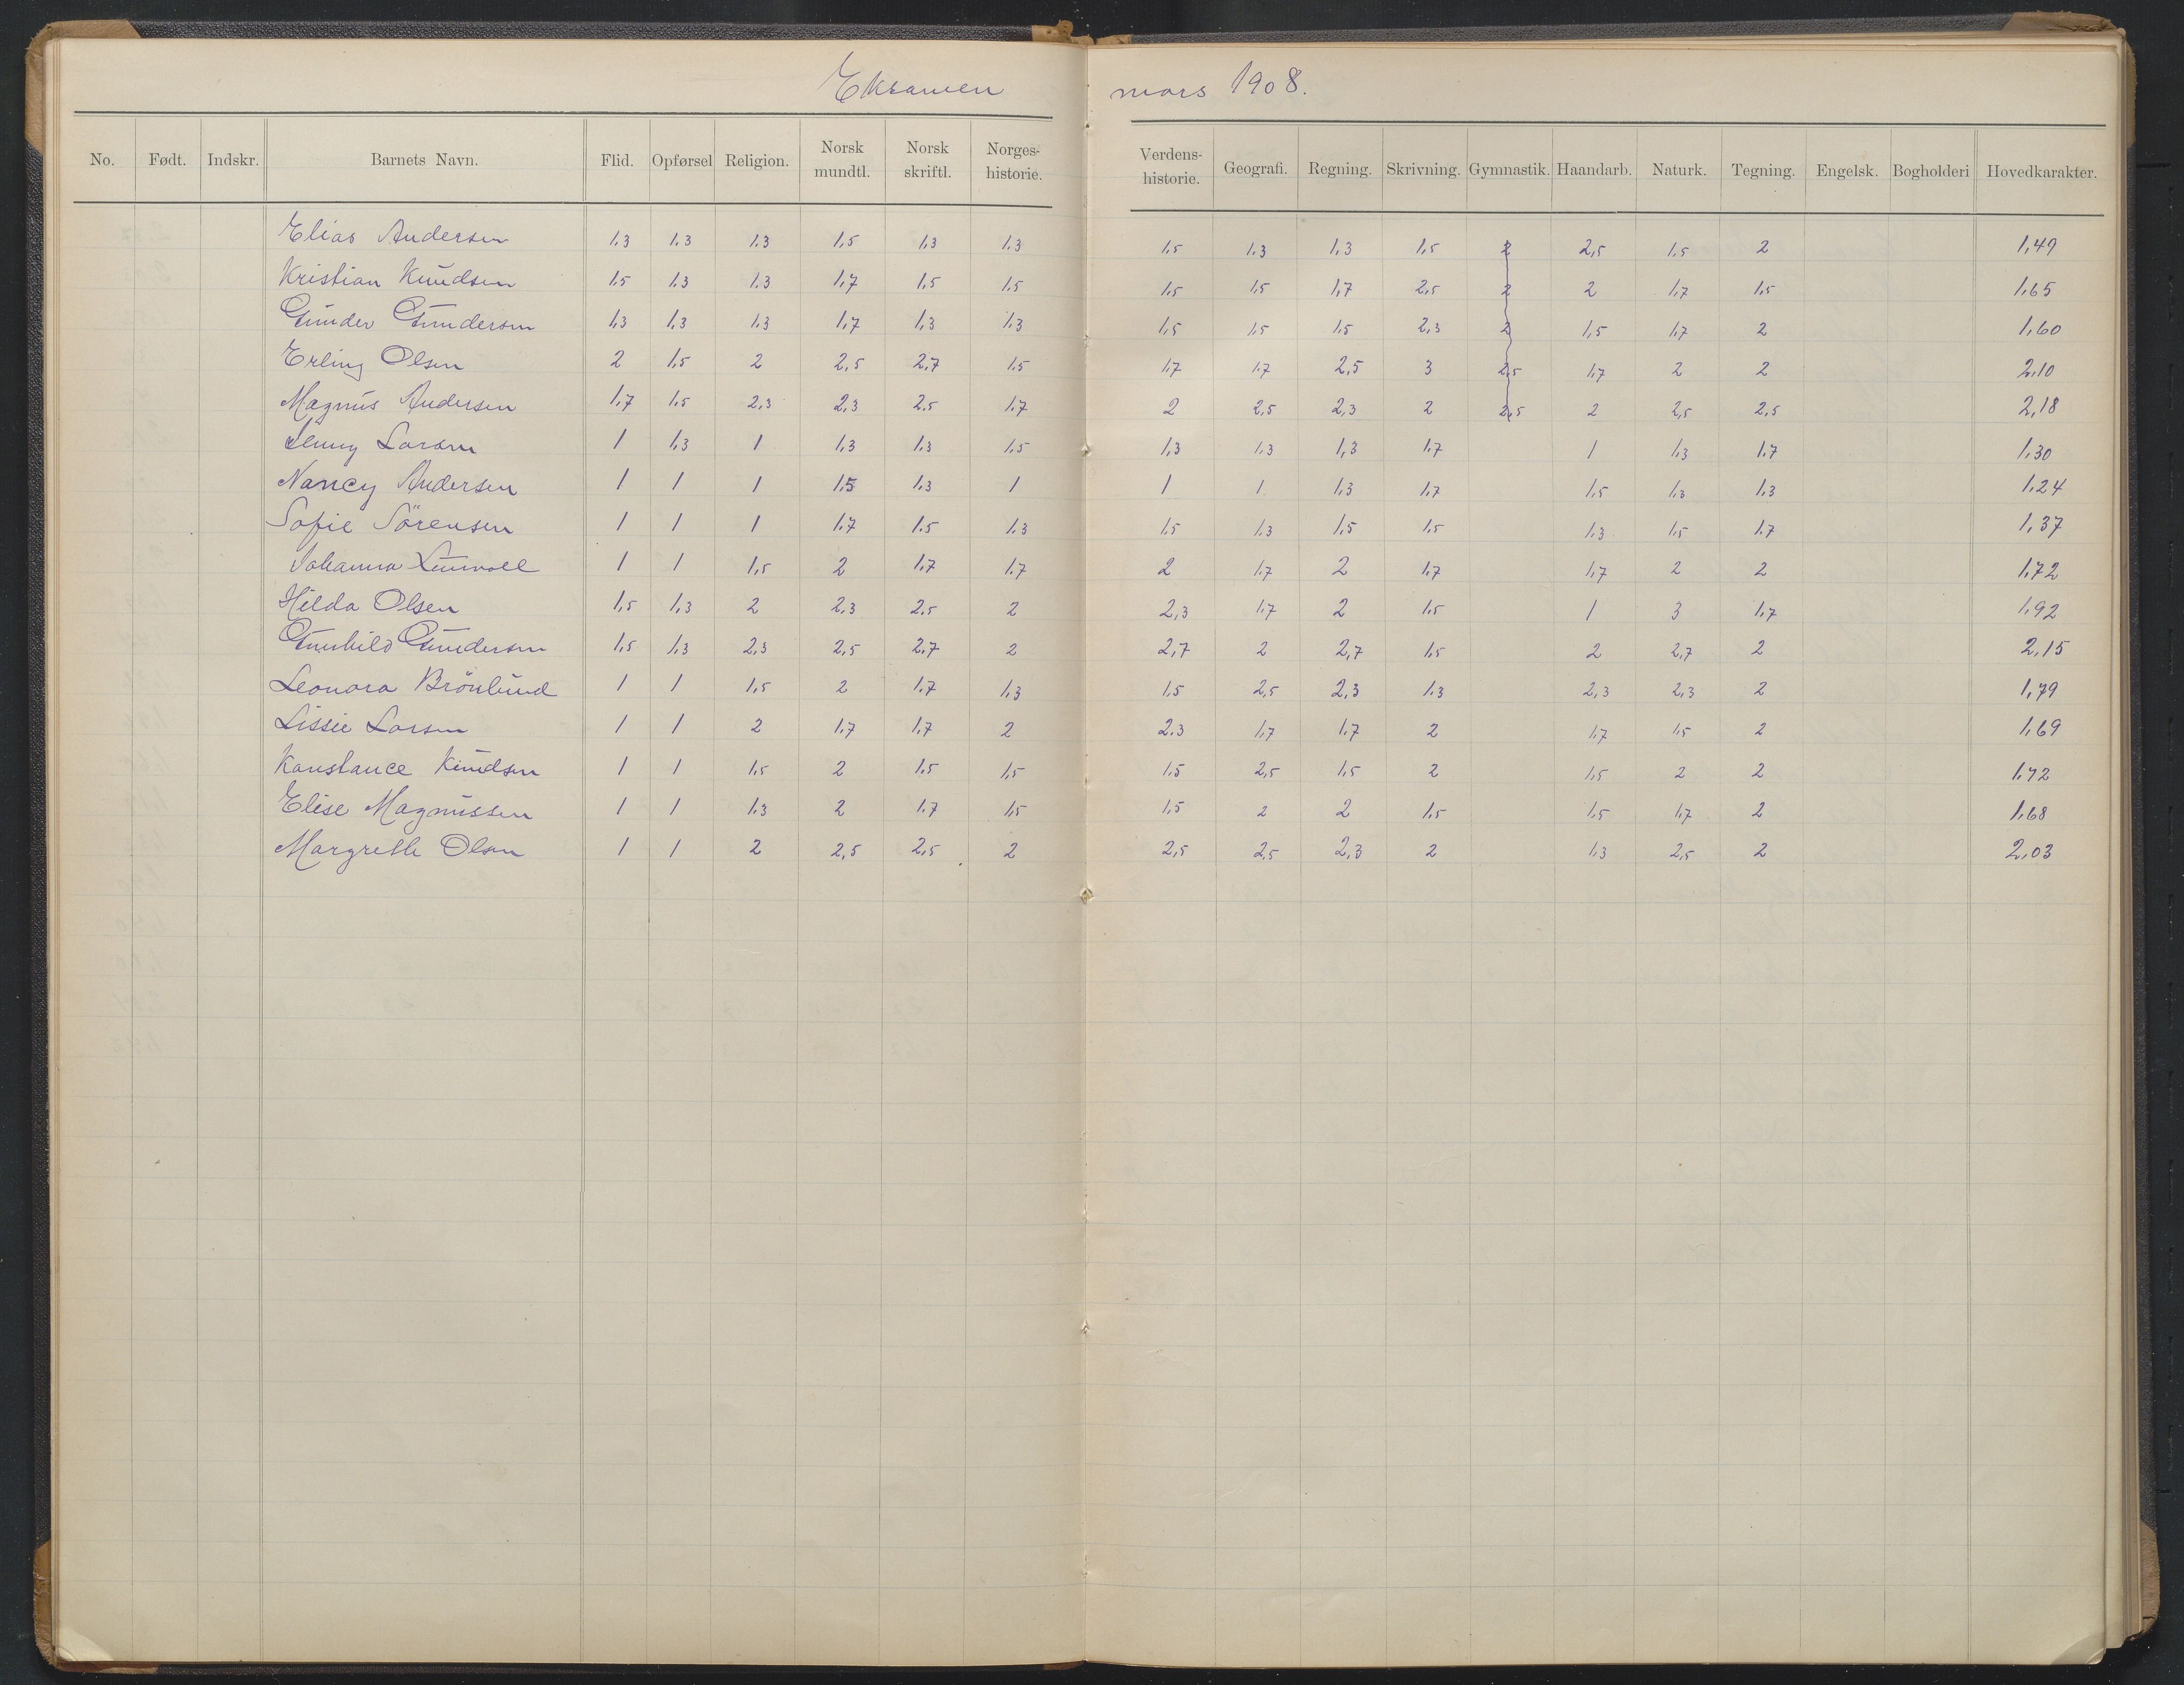 Eksamen mars 1908.
No. Født. Indskr. Barnets Navn. Flid. Opførsel Religion. Norsk mundtl. Norsk skriftl. Norges-historie. Verdens-historie. Geografi. Regning. Skrivning. Gymnastik. Haandarb. Naturk. Tegning. Engelsk. Bogholderi Hovedkarakter.
Elias Andersen 1,3 1,3 1,3 1,5 1,3 1,3 1,5 1,3 1,3 1,5 2 2,5 1,5 2 1,49
Kristian Knudsen 1,5 1,3 1,3 1,7 1,5 1,5 1,5 1,5 1,7 2,5 2 2 1,7 1,5 1,65
Gunder Gundersen 1,3 1,3 1,3 1,7 1,3 1,3 1,5 1,5 1,5 2,3 2 1,5 1,7 2 1,60
Erling Olsen 2 1,5 2 2,5 2,7 1,5 1,7 1,7 2,5 3 2,5 1,7 2 2 2,10
Magnus Andersen 1,7 1,5 2,3 2,3 2,5 1,7 2 2,5 2,3 2 2,5 2 2,5 2,5 2,18
Jenny Larsen 1 1,3 1 1,3 1,3 1,5 1,3 1,3 1,3 1,7 1 1,3 1,7 1,30
Nancy Andersen 1 1 1 1,5 1,3 1 1 1 1,3 1,7 1,5 1,3 1,3 1,24
Sofie Sörensen 1 1 1 1,7 1,5 1,3 1,5 1,3 1,5 1,5 1,3 1,5 1,7 1,37
Johanna 1 1 1,5 2 1,7 1,7 2 1,7 2 1,7 1,7 2 2 1,72
Hilda Olsen 1,5 1,3 2 2,3 2,5 2 2,3 1,7 2 1,5 1 3 1,7 1,92
Gunhild Gundersen 1,5 1,3 2,3 2,5 2,7 2 2,7 2 2,7 1,5 2 2,7 2 2,15
Leonora Brönlund 1 1 1,5 2 1,7 1,3 1,5 2,5 2,3 1,3 2,3 2,3 2 1,79
Lissie Larsen 1 1 2 1,7 1,7 2 2,3 1,7 1,7 2 1,7 1,5 2 1,69
Konstance Knudsen 1 1 1,5 2 1,5 1,5 1,5 2,5 1,5 2 1,5 2 2 1,72
Elise Magnussen 1 1 1,3 2 1,7 1,5 1,5 2 2 1,5 1,5 1,7 2 1,68
Margrethe Olsen 1 1 2 2,5 2,5 2 2,5 2,5 2,3 2 1,3 2,5 2 2,03